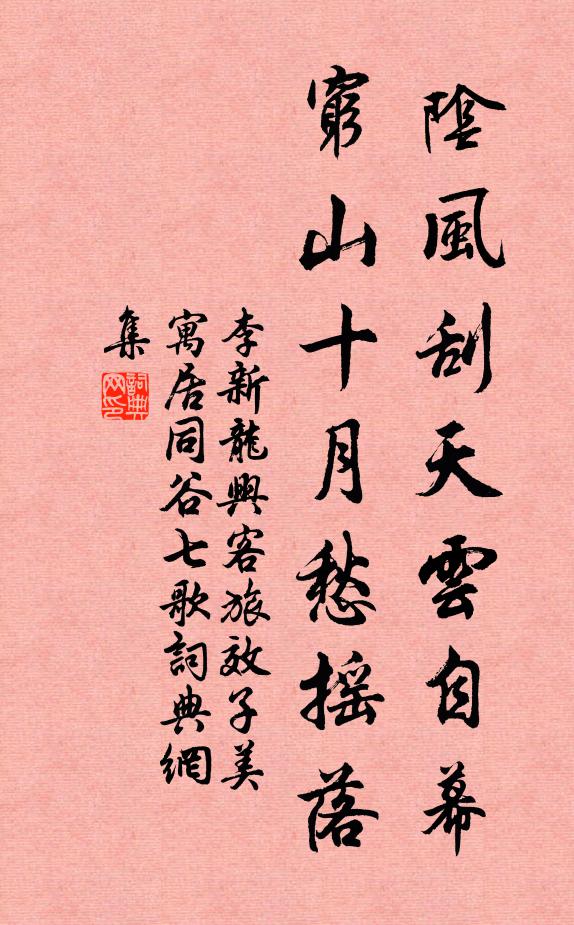 陰風刮天雲自幕
窮山十月愁搖落
李新龍興客旅效子美
寓居同谷七歌詞典網
集
詞典網印